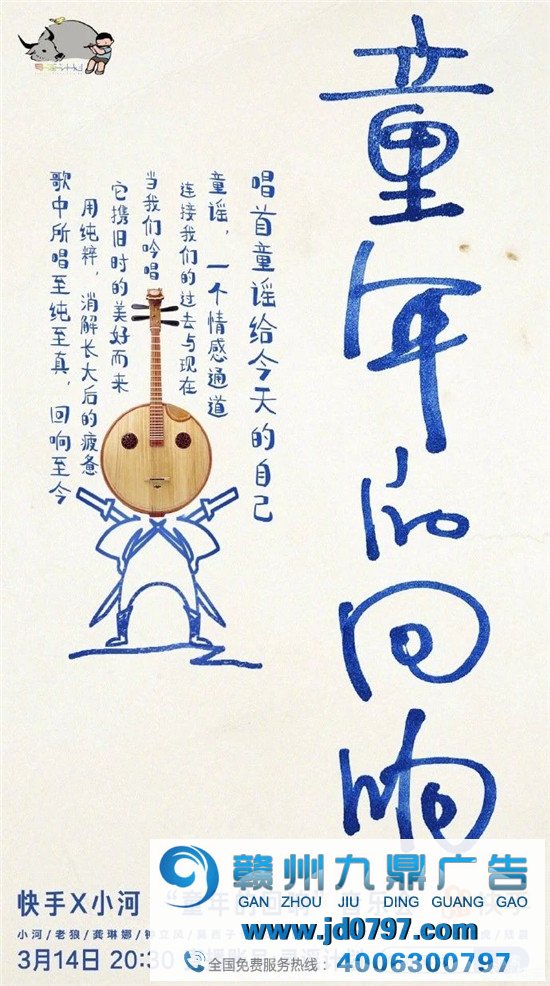 童年的回响
唱首童谣给今天的自己
童谣，一个情感通道
连接我们的过去与现在
当我们吟唱
它携旧时的美好而来
用纯粹，消解长大后的疲惫
歌中所唱至纯至真，回响至今
快手X小河
小河/老狼/龚琳娜/
3月14日 20:30
赣州九鼎广告
GAN ZHOU JIU DING GUANG GAO
www.jd0797.com
全国免费服务热线：4006300797